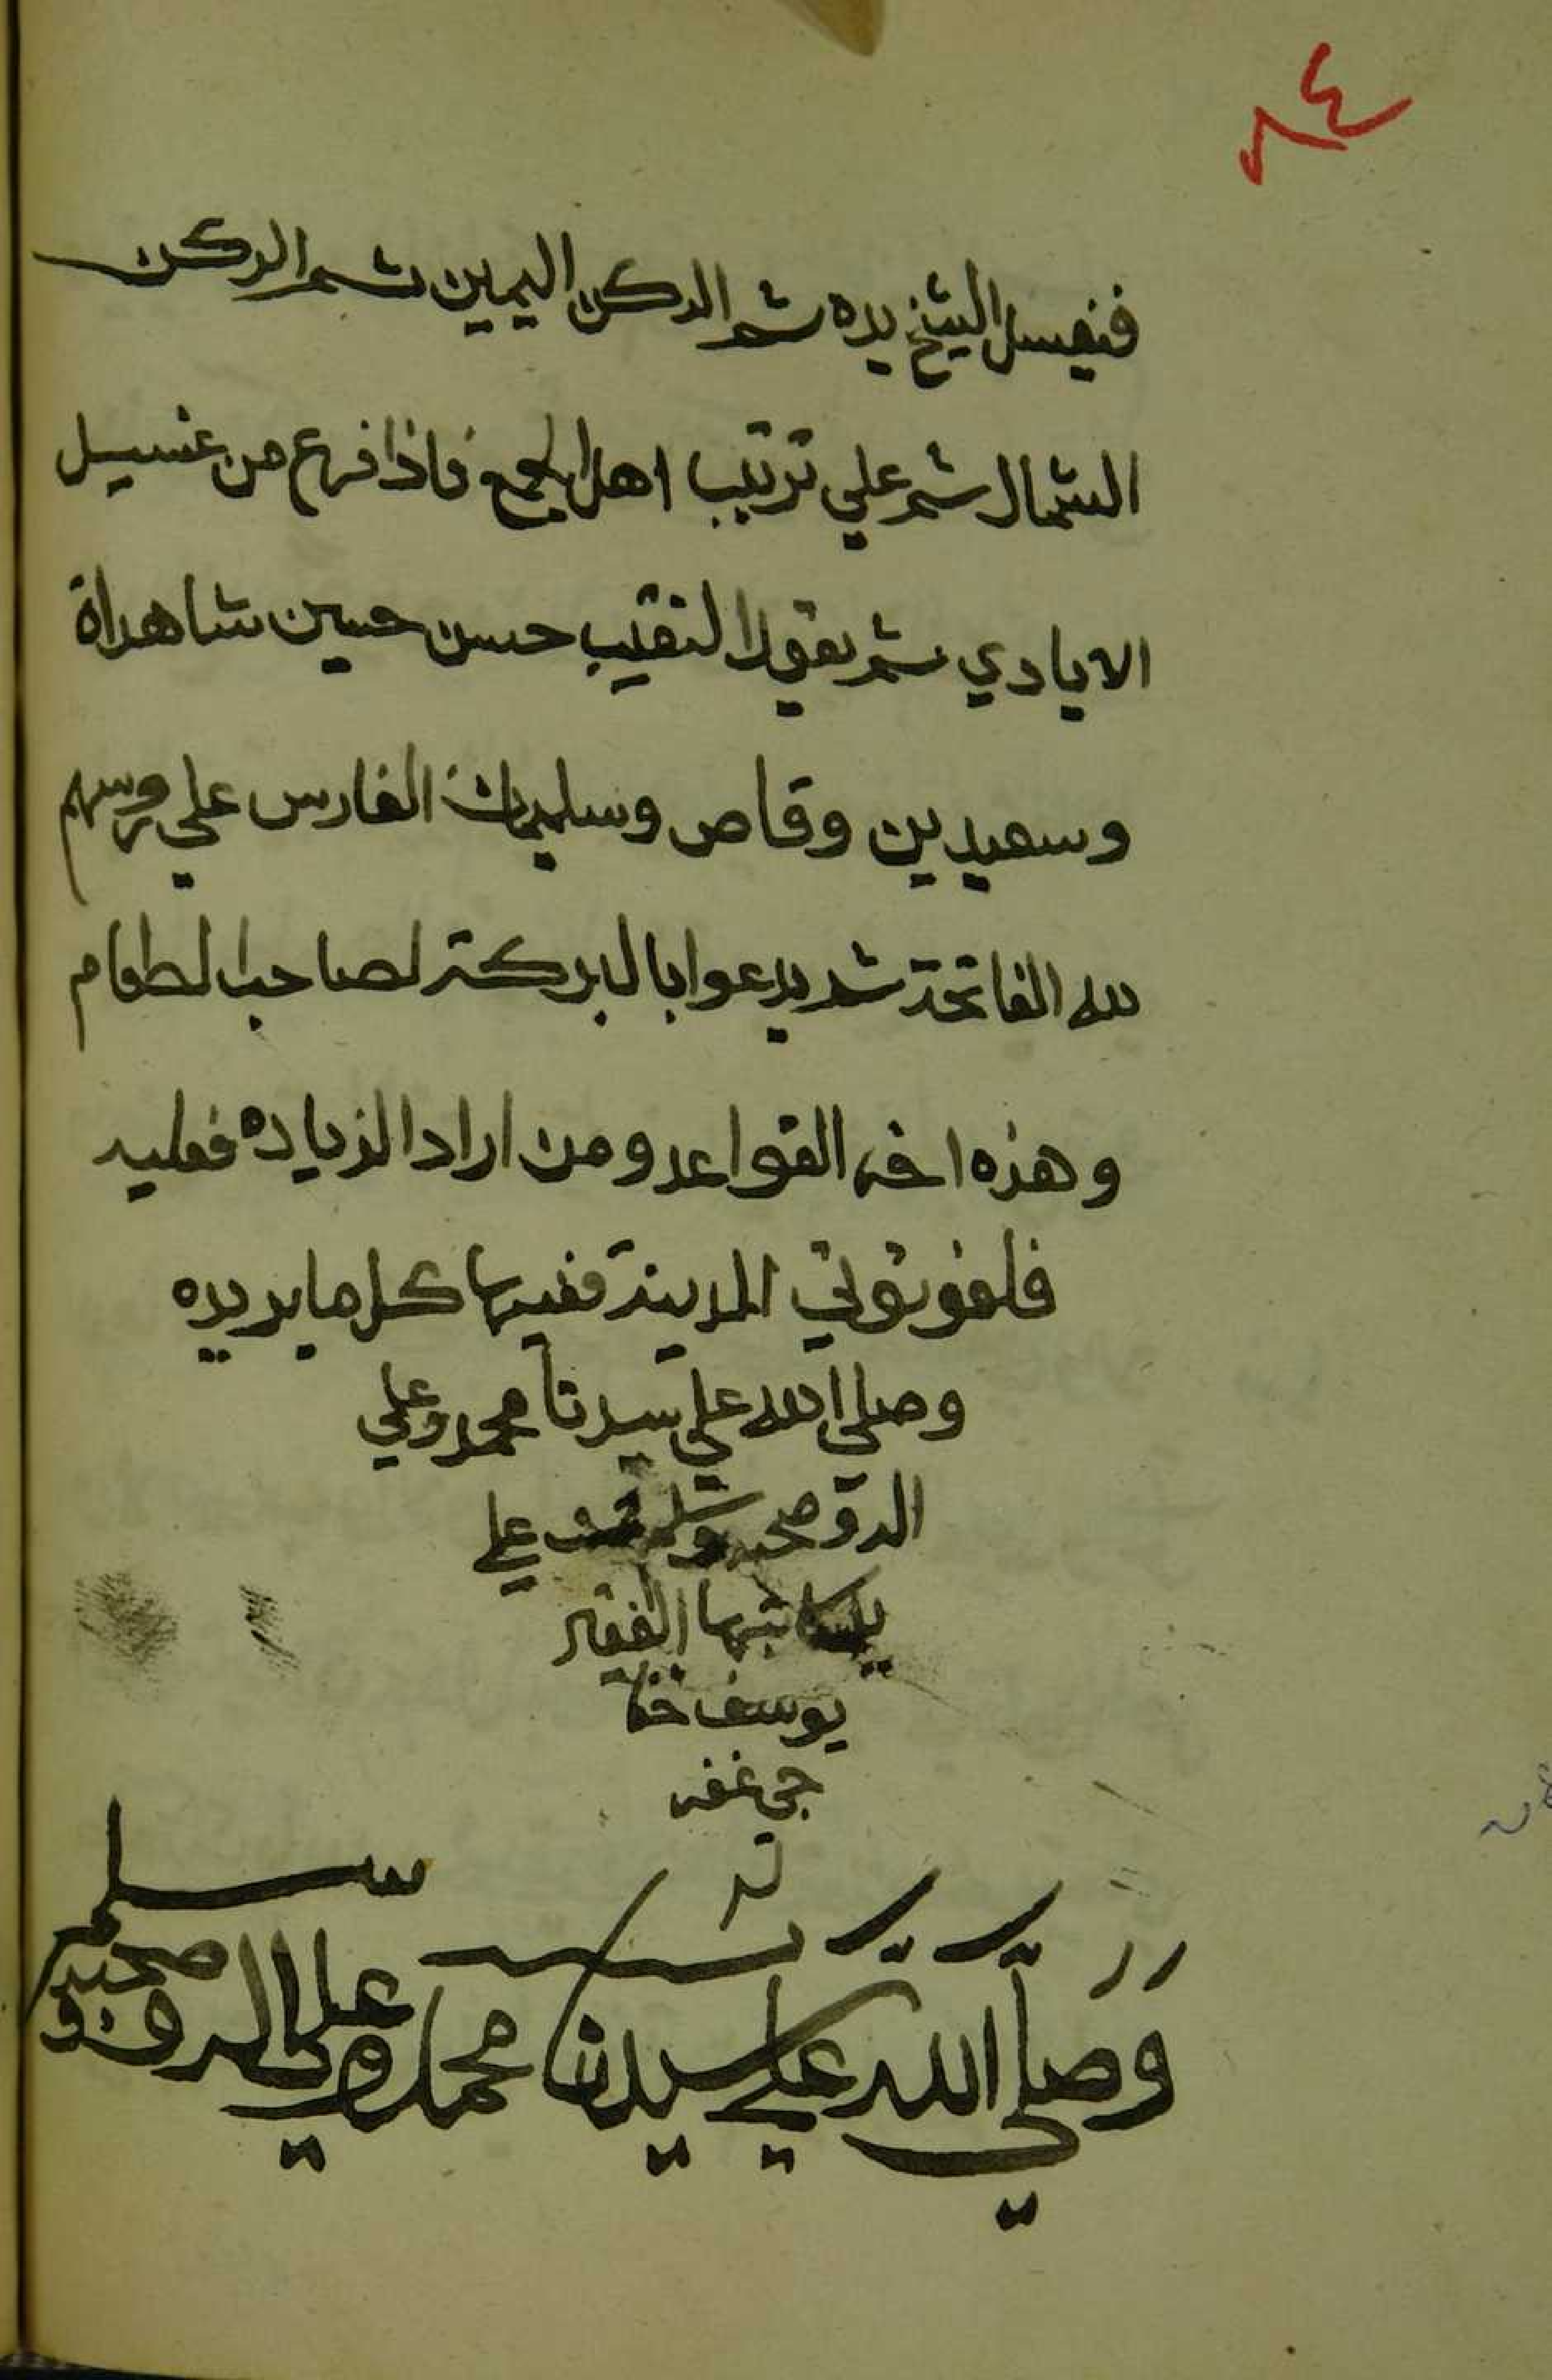 ٨٤
فيغسل الشيخ يده شم الركن اليمين شم الركن
الشمال شم علي ترتيب اهل الجمع فاذا فرغ من غسيل
الايادي شم يقول النقيب حسن حسين شاهداة
وسعيد بن وقاص وسليمان الفارس علي
لله الفاتحة شم يدعوا بالبركة لصاحب الطعام
وهذه اخر القواعد ومن اراد الزياده فعليه
المدينة ففيها كل ما يريده
وصلي الله علي سيدنا محمد وعلي
اله وصحبه وسلم تمت علي
يد كاتبها الفقير
يوسف خفا
جي غفر
له
وصلي الله علي سيدنا محمد وعلي اله وصحبه وسلم